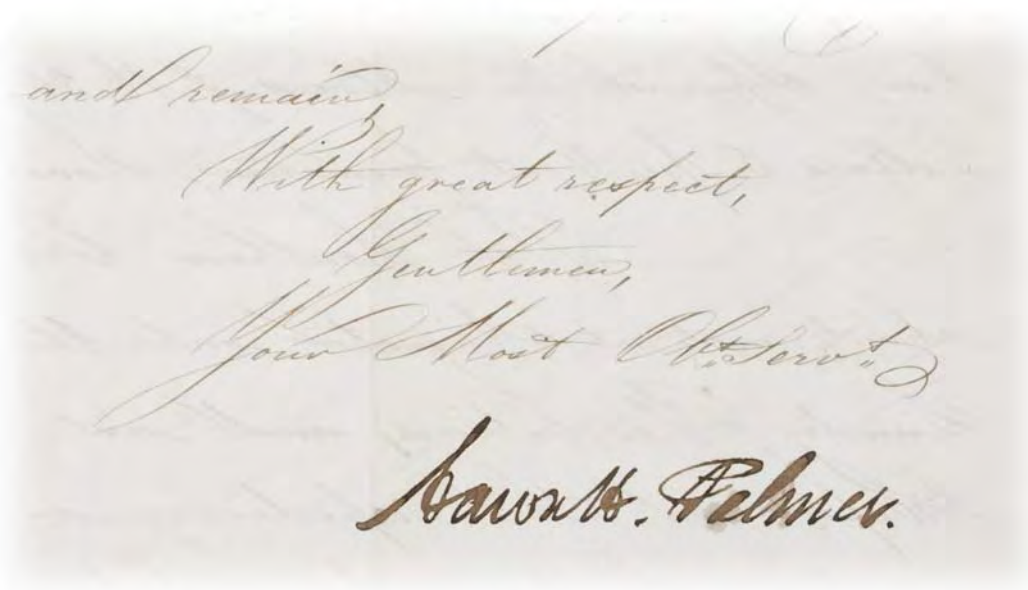 and I remain,
With great respect,
Gentlemen,
Your Most Obt. Servt.
Aaron H. Palmer.